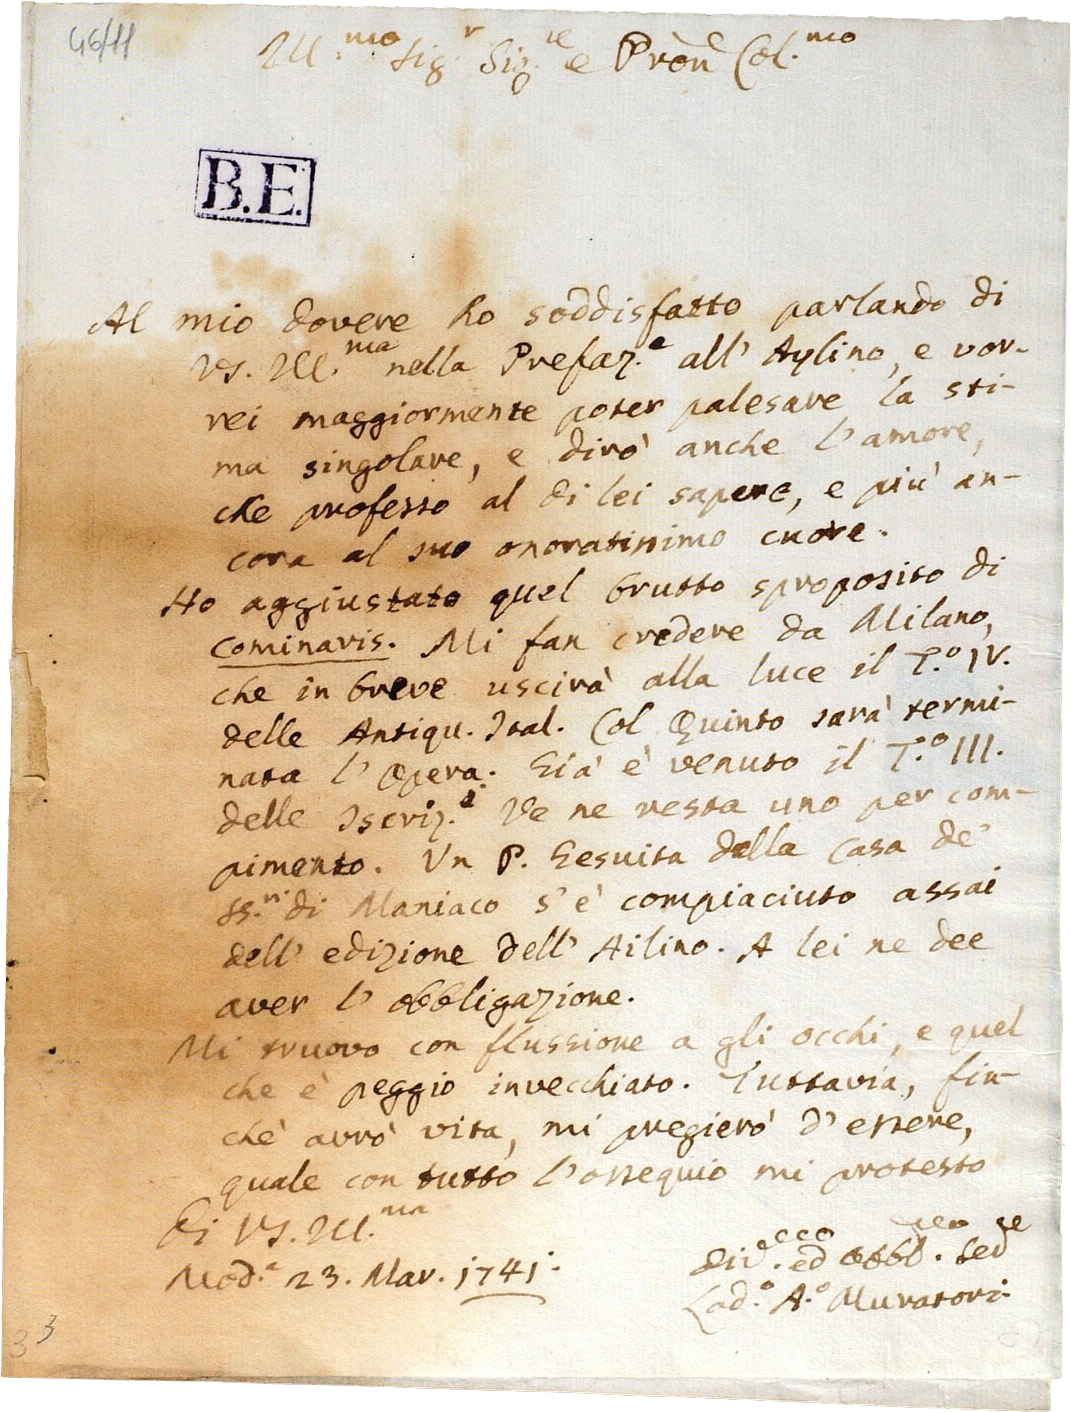 46/11
Ill.mo Sig.r Sig.re e Pron Col.mo
B.E.
Al mio dovere ho soddisfatto parlando di
VS. Ill.ma nella Prefaz.e all' Aylino, e vor-
rei maggiormente poter palesare la sti-
ma singolare, e dirò anche l'amore,
che professo al di lei sapere, e più an-
cora al suo onoratissimo cuore.
Ho aggiustato quel brutto sproposito di
cominavis. Mi fan credere da Milano,
che in breve uscirà alla luce il T.o IV.
delle Antiqu. Ital. Col Quinto sarà termi-
nata l'Opera. Già è venuto il T.o III.
delle Iscriz.i Ve ne resta uno per com-
pimento. Un P. Gesuita della Casa de'
SS.ri di Maniaco s'è compiaciuto assai
dell' edizione dell' Ailino. A lei ne dee
aver l'obbligazione.
Mi truovo con flussione a gli occhi, e quel
che è peggio invecchiato. Tuttavia, fin-
chè avrò vita, mi pregierò d'essere,
quale con tutto l'ossequio mi protesto
Di VS. Ill.ma
Mod.a 23. Mar. 1741.
Div.mo ed obbl.mo Sed.re
Lod.o A.o Muratori
33